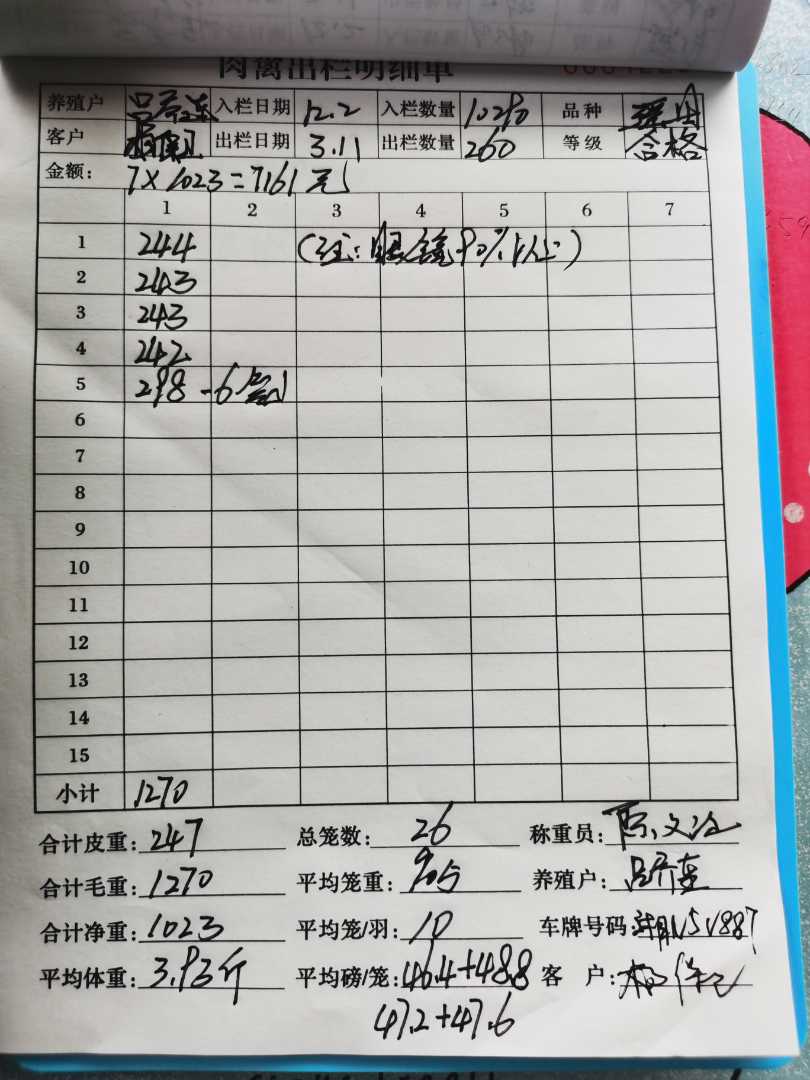 肉禽出栏明细单
养殖户 入栏日期 12.2 入栏数量 10290 品种
客户 出栏日期 3.11 出栏数量 260 等级 合格
金额: 7×1023=7161元
1 2 3 4 5 6 7
1 244 (注: 90%以上)
2 243
3 243
4 242
5 298 -6
6
7
8
9
10
11
12
13
14
15
小计 1270
合计皮重: 247 总笼数: 26 称重员:
合计毛重: 1270 平均笼重: 9.05 养殖户:
合计净重: 1023 平均笼/羽: 10 车牌号码:
平均体重: 3.93斤 平均磅/笼: 46.4+48.8 客 户:
47.2+47.6